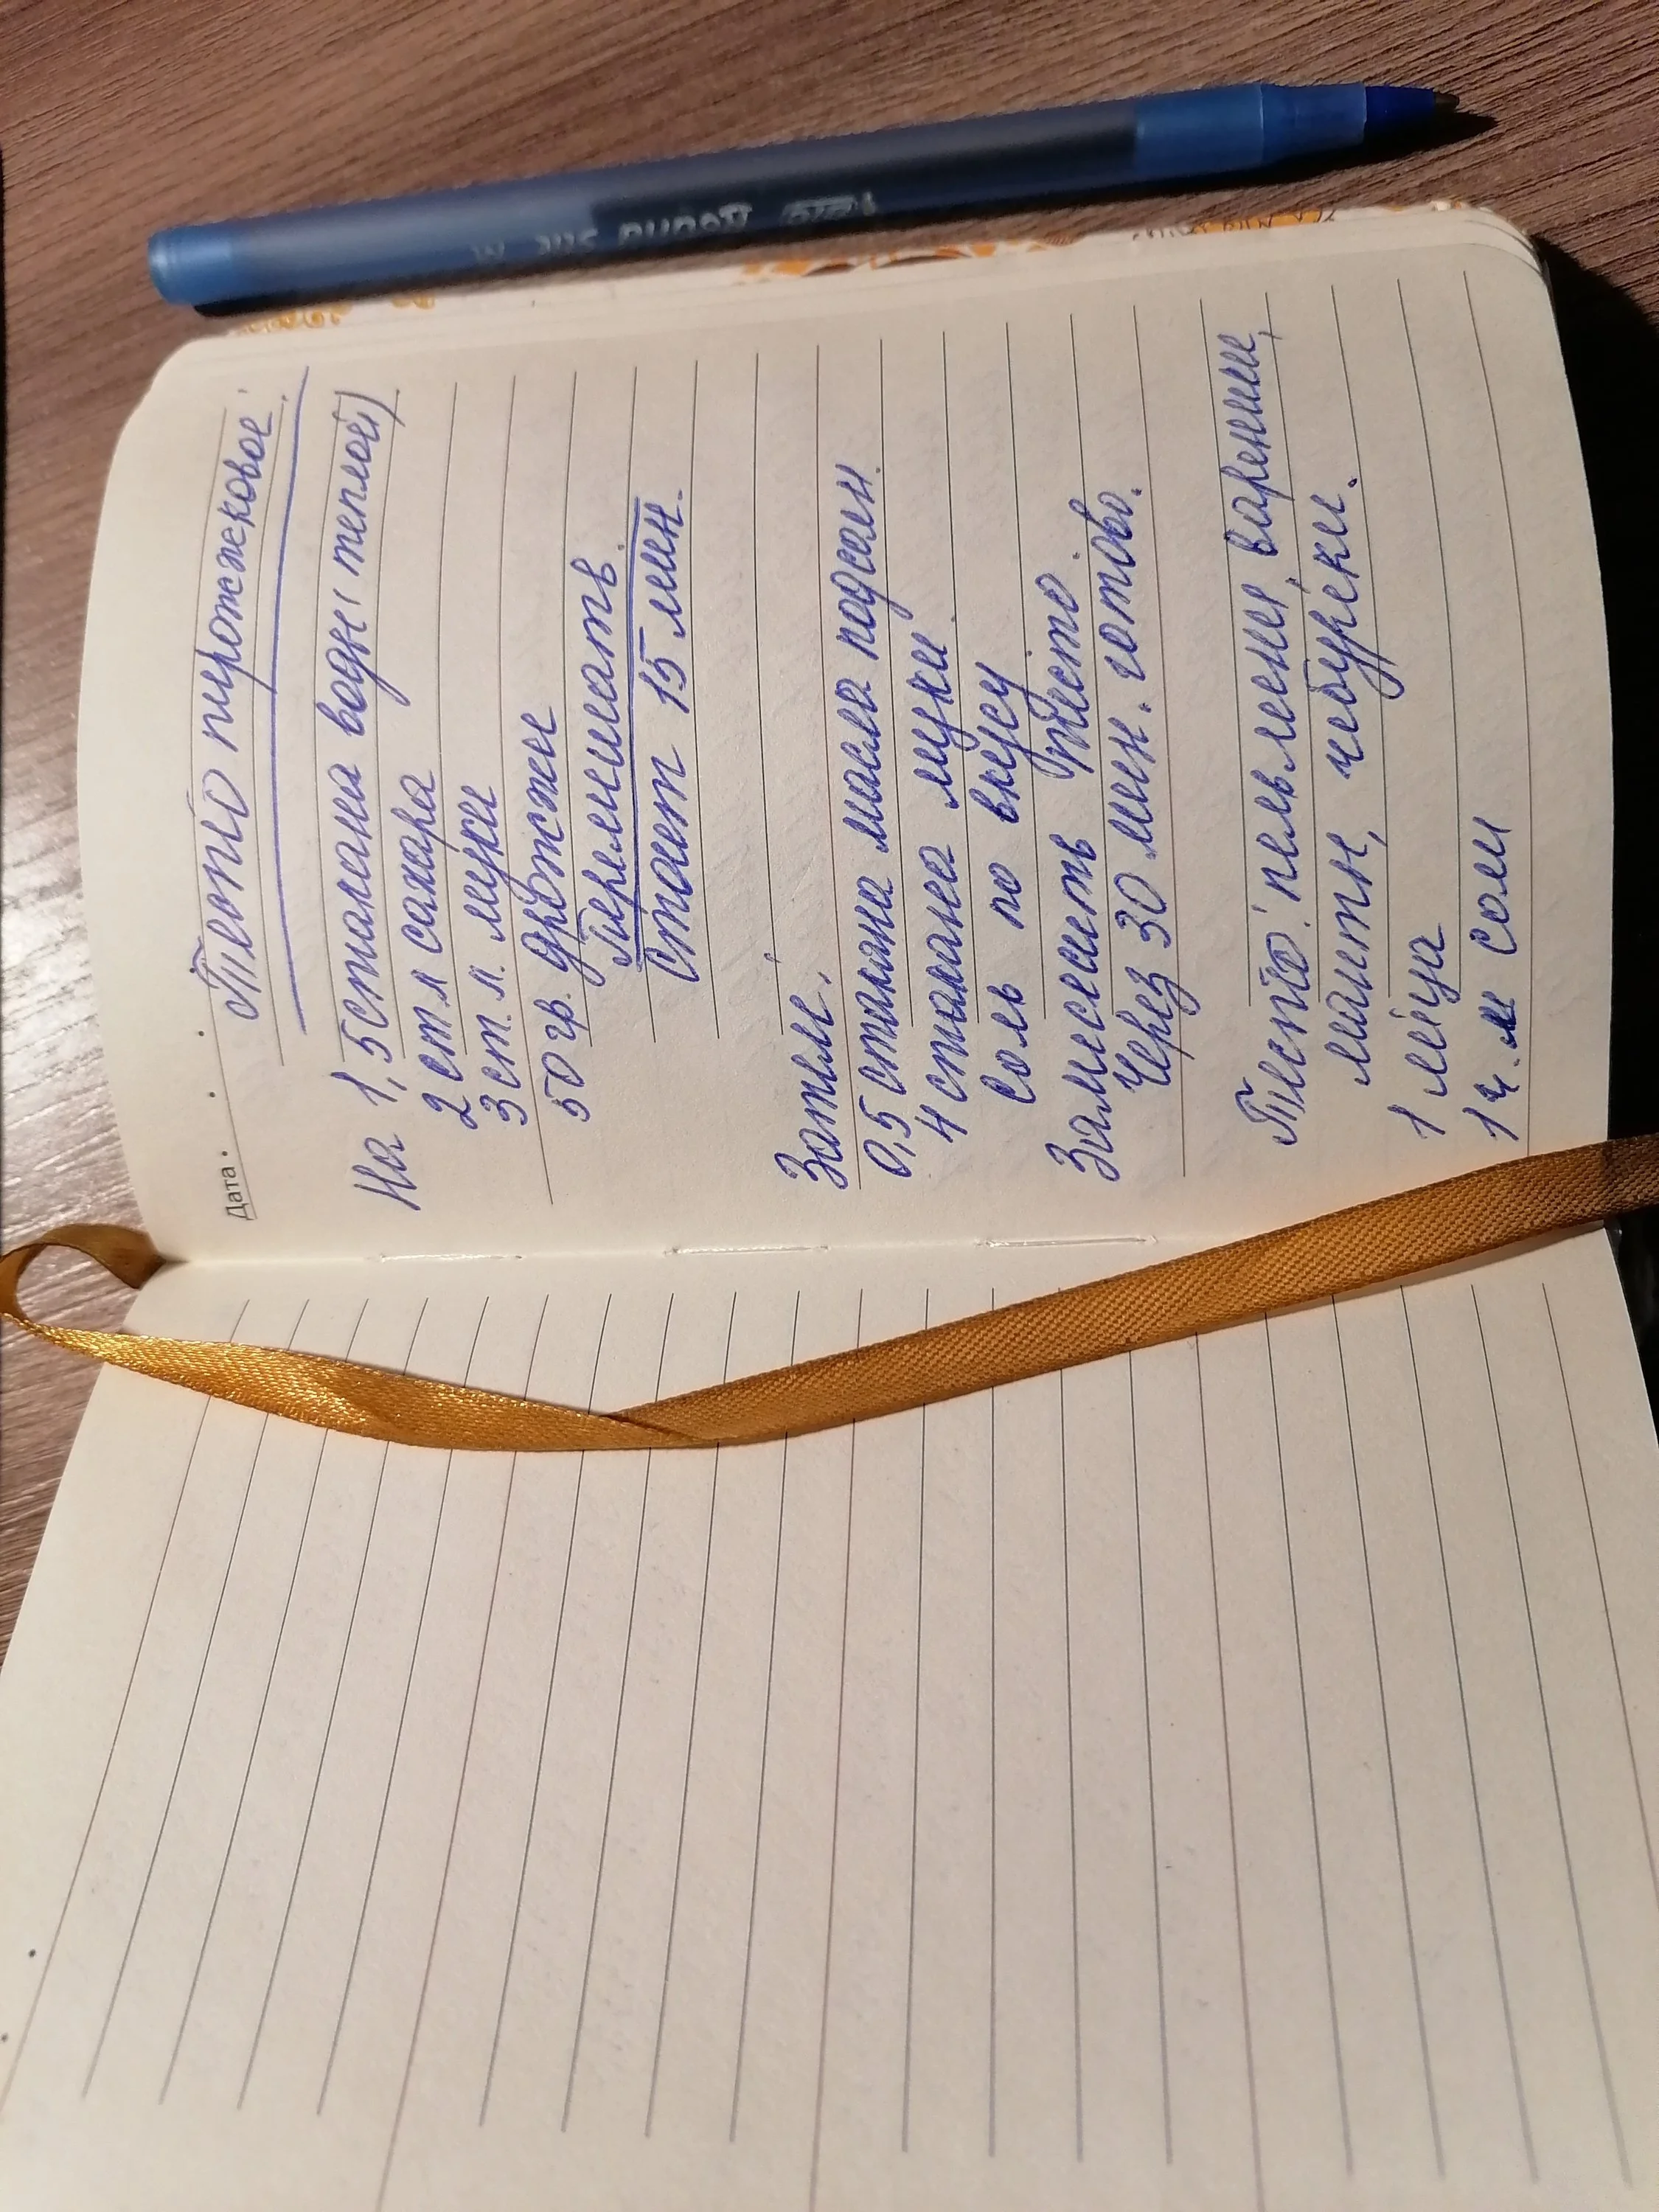 Дата
Тесто пирожковое!
На 1,5 стакана воды (теплой)
2 ст л сахара
3 ст. л. муки
50 гр. дрожжи
Перемешать.
Стоит 15 мин.
Затем:
0,5 стакана масла подсолн.
4 стакана муки.
Соль по вкусу
Замесить тесто.
Через 30 мин. готово.
Тесто: пельмени, вареники,
манты, чебуреки.
1 яйцо
1 ч. л соли
Round Stic M